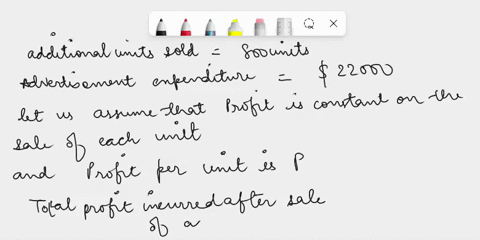 additional units sold = 800 units
Advertisement expenditure = $ 22000
let us assume that Profit is constant on the
sale of each unit
and Profit per unit is P
Total profit incurred after sale
of a